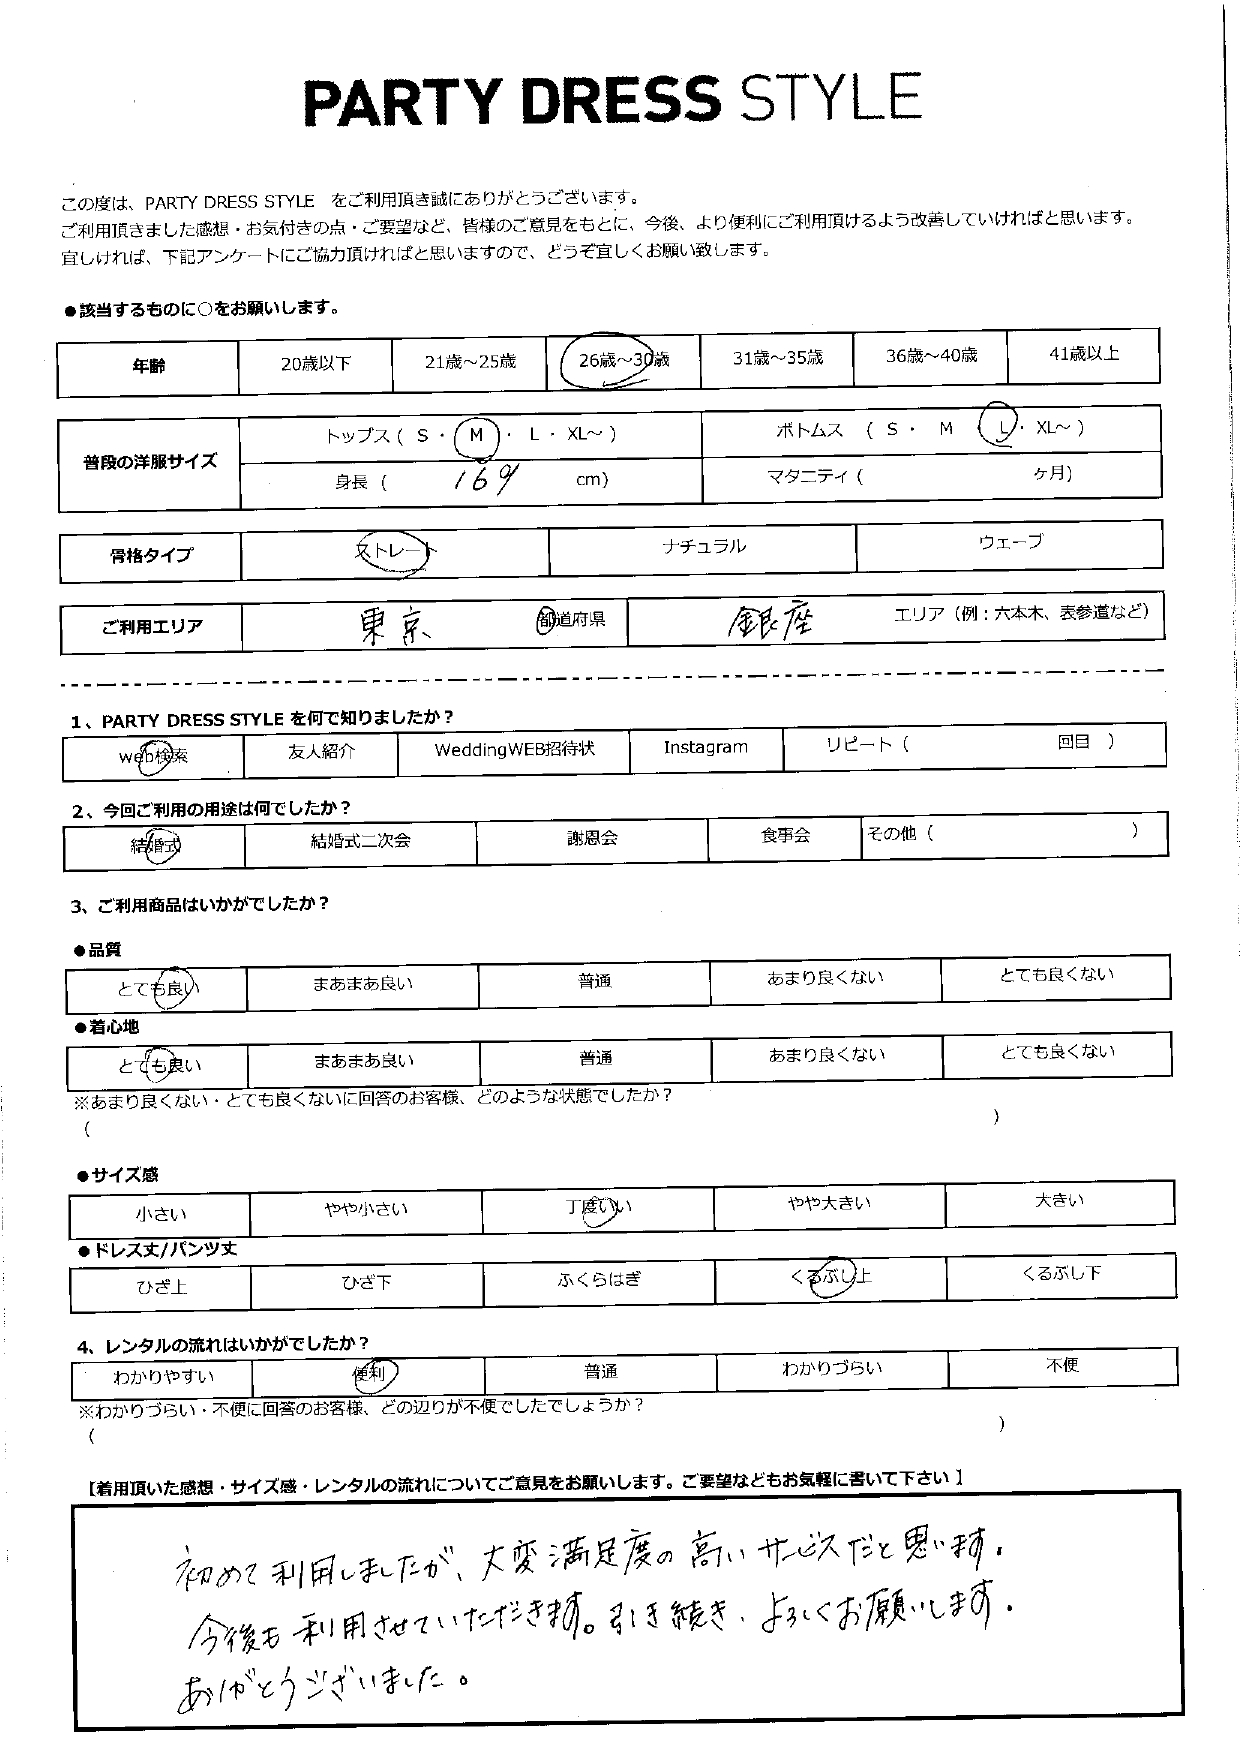 PARTY DRESS STYLE
この度は、PARTY DRESS STYLE をご利用頂き誠にありがとうございます。
ご利用頂きました感想・お気付きの点・ご要望など、皆様のご意見をもとに、今後、より便利にご利用頂けるよう改善していければと思います。
宜しければ、下記アンケートにご協力頂ければと思いますので、どうぞ宜しくお願い致します。
●該当するものに○をお願いします。
年齢 20歳以下 21歳～25歳 26歳～30歳 31歳～35歳 36歳～40歳 41歳以上
普段の洋服サイズ トップス（ S ・ M ・ L ・ XL～ ） ボトムス （ S ・ M ・ L ・ XL～ ）
身長（ 169 cm） マタニティ（ ヶ月）
骨格タイプ ストレート ナチュラル ウェーブ
ご利用エリア 東京 都道府県 銀座 エリア（例：六本木、表参道など）
1、PARTY DRESS STYLE を何で知りましたか？
web検索 友人紹介 WeddingWEB招待状 Instagram リピート（ 回目 ）
2、今回ご利用の用途は何でしたか？
結婚式 結婚式二次会 謝恩会 食事会 その他（ ）
3、ご利用商品はいかがでしたか？
●品質
とても良い まあまあ良い 普通 あまり良くない とても良くない
●着心地
とても良い まあまあ良い 普通 あまり良くない とても良くない
※あまり良くない・とても良くないに回答のお客様、どのような状態でしたか？
（ ）
●サイズ感
小さい やや小さい 丁度いい やや大きい 大きい
●ドレス丈/パンツ丈
ひざ上 ひざ下 ふくらはぎ くるぶし上 くるぶし下
4、レンタルの流れはいかがでしたか？
わかりやすい 便利 普通 わかりづらい 不便
※わかりづらい・不便に回答のお客様、どの辺りが不便でしたでしょうか？
（ ）
【着用頂いた感想・サイズ感・レンタルの流れについてご意見をお願いします。ご要望などもお気軽に書いて下さい 】
初めて利用しましたが、大変満足度の高いサービスだと思います。
今後も利用させていただきます。引き続き、よろしくお願いします。
ありがとうございました。